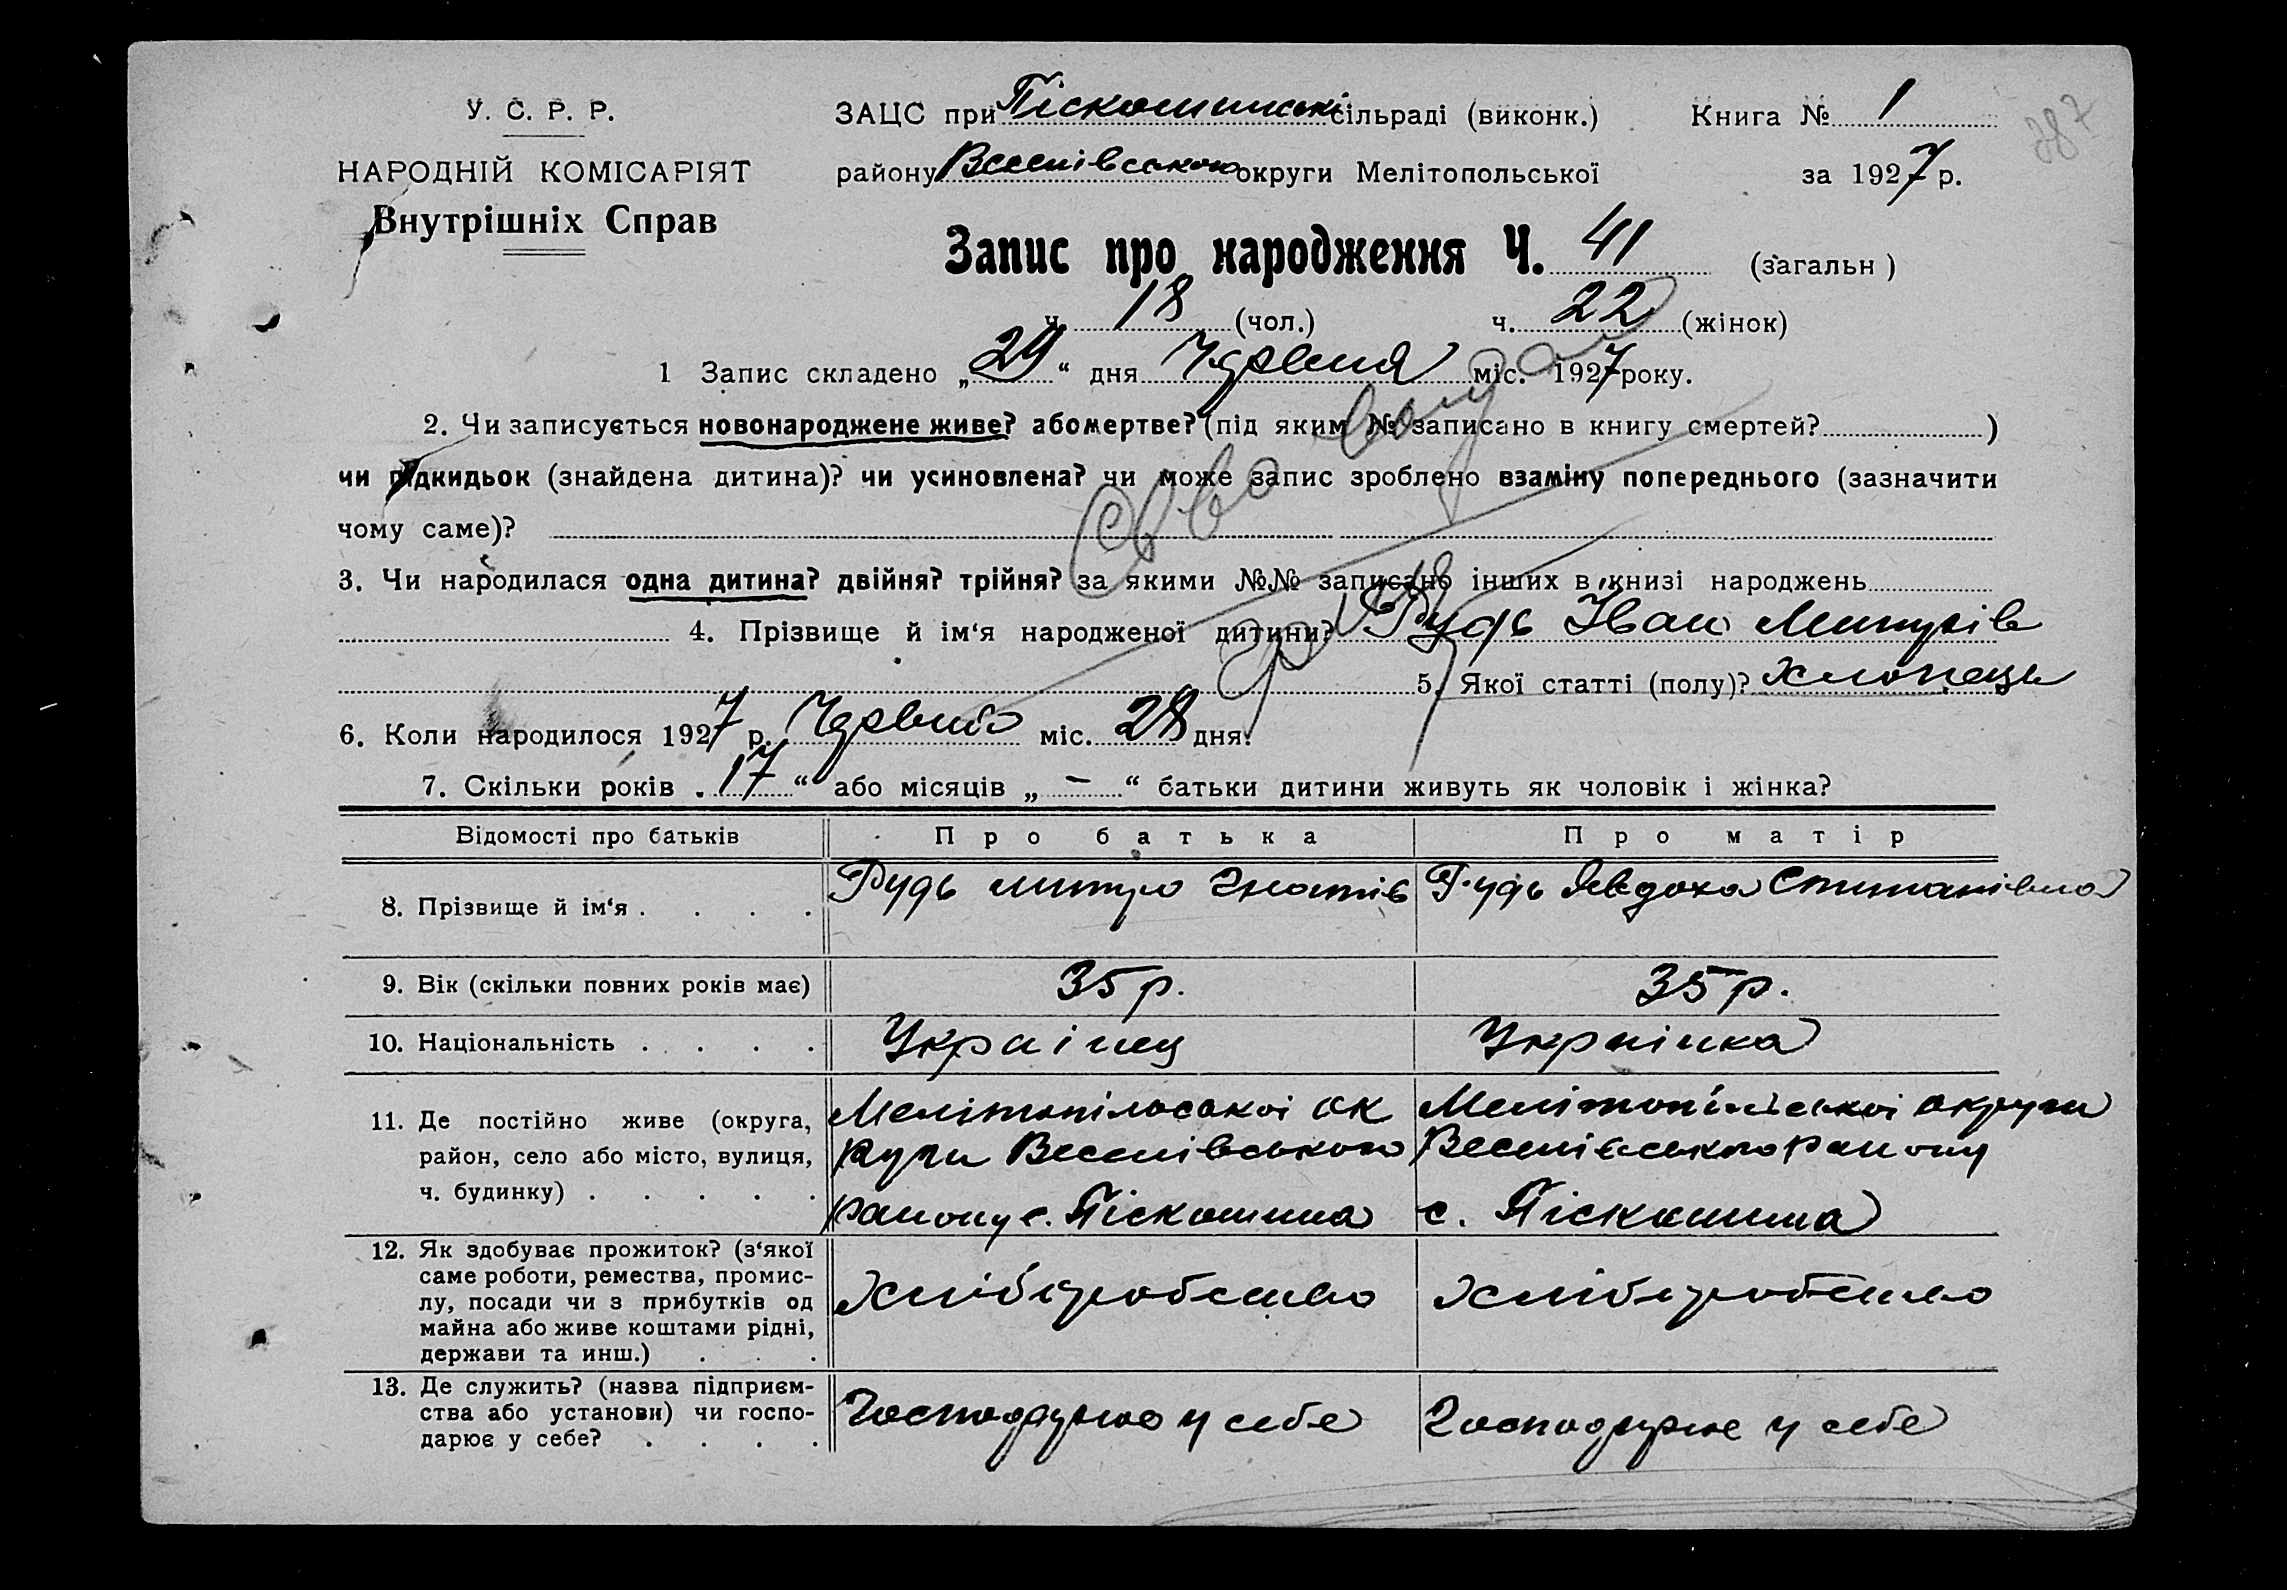 У. С. Р. Р.
НАРОДНІЙ КОМІСАРІЯТ
Внутрішніх Справ
ЗАЦС при Піскошинські сільраді (виконк.) Книга № 1
387
району Веселівського округи Мелітопольської за 1927 р.
Запис про народження Ч. 41 (загальн)
ч. 18 (чол.) ч. 22 (жінок)
1 Запис складено „29“ дня Червня міс. 1927 року.
2. Чи записується новонароджене живе? або мертве? (під яким № записано в книгу смертей? )
чи підкидьок (знайдена дитина)? чи усиновлена? чи може запис зроблено взаміну попереднього (зазначити
чому саме)?
3. Чи народилася одна дитина? двійня? трійня? за якими №№ записано інших в книзі народжень
4. Прізвище й ім‘я народженої дитини? Рудь Іван Митрів
5. Якої статті (полу)? Хлопець
6. Коли народилося 1927 р. Червню міс. 28 дня.
7. Скільки років „17“ або місяців „—“ батьки дитини живуть як чоловік і жінка?
Відомості про батьків Про батька Про матір
8. Прізвище й ім‘я . . . . Рудь митро Гнатів Рудь Явдоха Степанівна
9. Вік (скільки повних років має) 35 р. 35 р.
10. Національність . . . . Украінец Украінка
11. Де постійно живе (округа, район, село або місто, вулиця, ч. будинку) . . . . .
Мелітопільськоі ок
руги Веселівського
району с. Піскошина
Мелітопільськоі округи
Веселівського району
с. Піскошина
12. Як здобуває прожиток? (з‘якої
саме роботи, ремества, промис-
лу, посади чи з прибутків од
майна або живе коштами рідні,
держави та инш.) . . .
Хліборобство Хліборобство
13. Де служить? (назва підприєм-
ства або установи) чи госпо-
дарює у себе? . . . .
Господарює у себе Господарює у себе